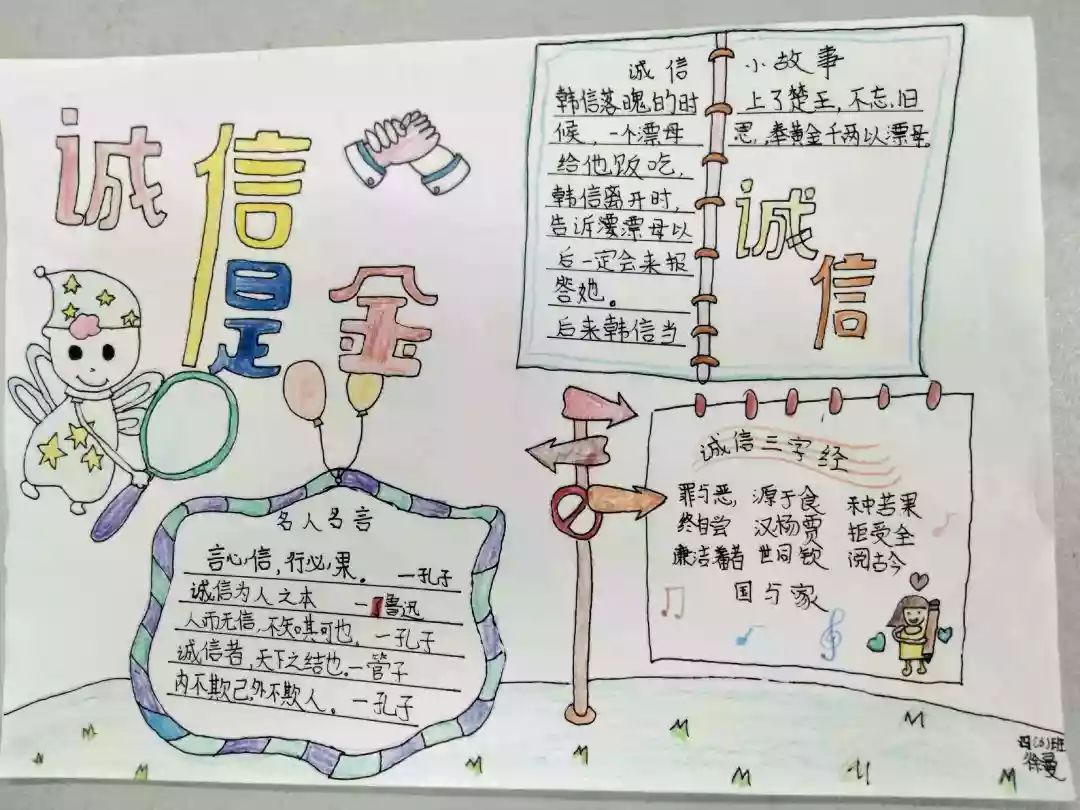 诚信是金
诚信
小故事
韩信落魄的时
候,一个漂母
给他饭吃,
韩信离开时,
告诉漂母以
后一定会来报
答她。
后来韩信当
上了楚王,不忘旧
恩,奉黄金千两以漂母
诚信
诚信三字经
罪与恶,源于贪 种苦果
终自尝 汉杨贾 拒受金
廉洁者 世同钦 阅古今
国与家
名人名言
言必信,行必果。 一孔子
诚信为人之本 一鲁迅
人而无信,不知其可也, 一孔子
诚信者,天下之结也.一管子
内不欺己,外不欺人。一孔子
四(6)班
徐曼